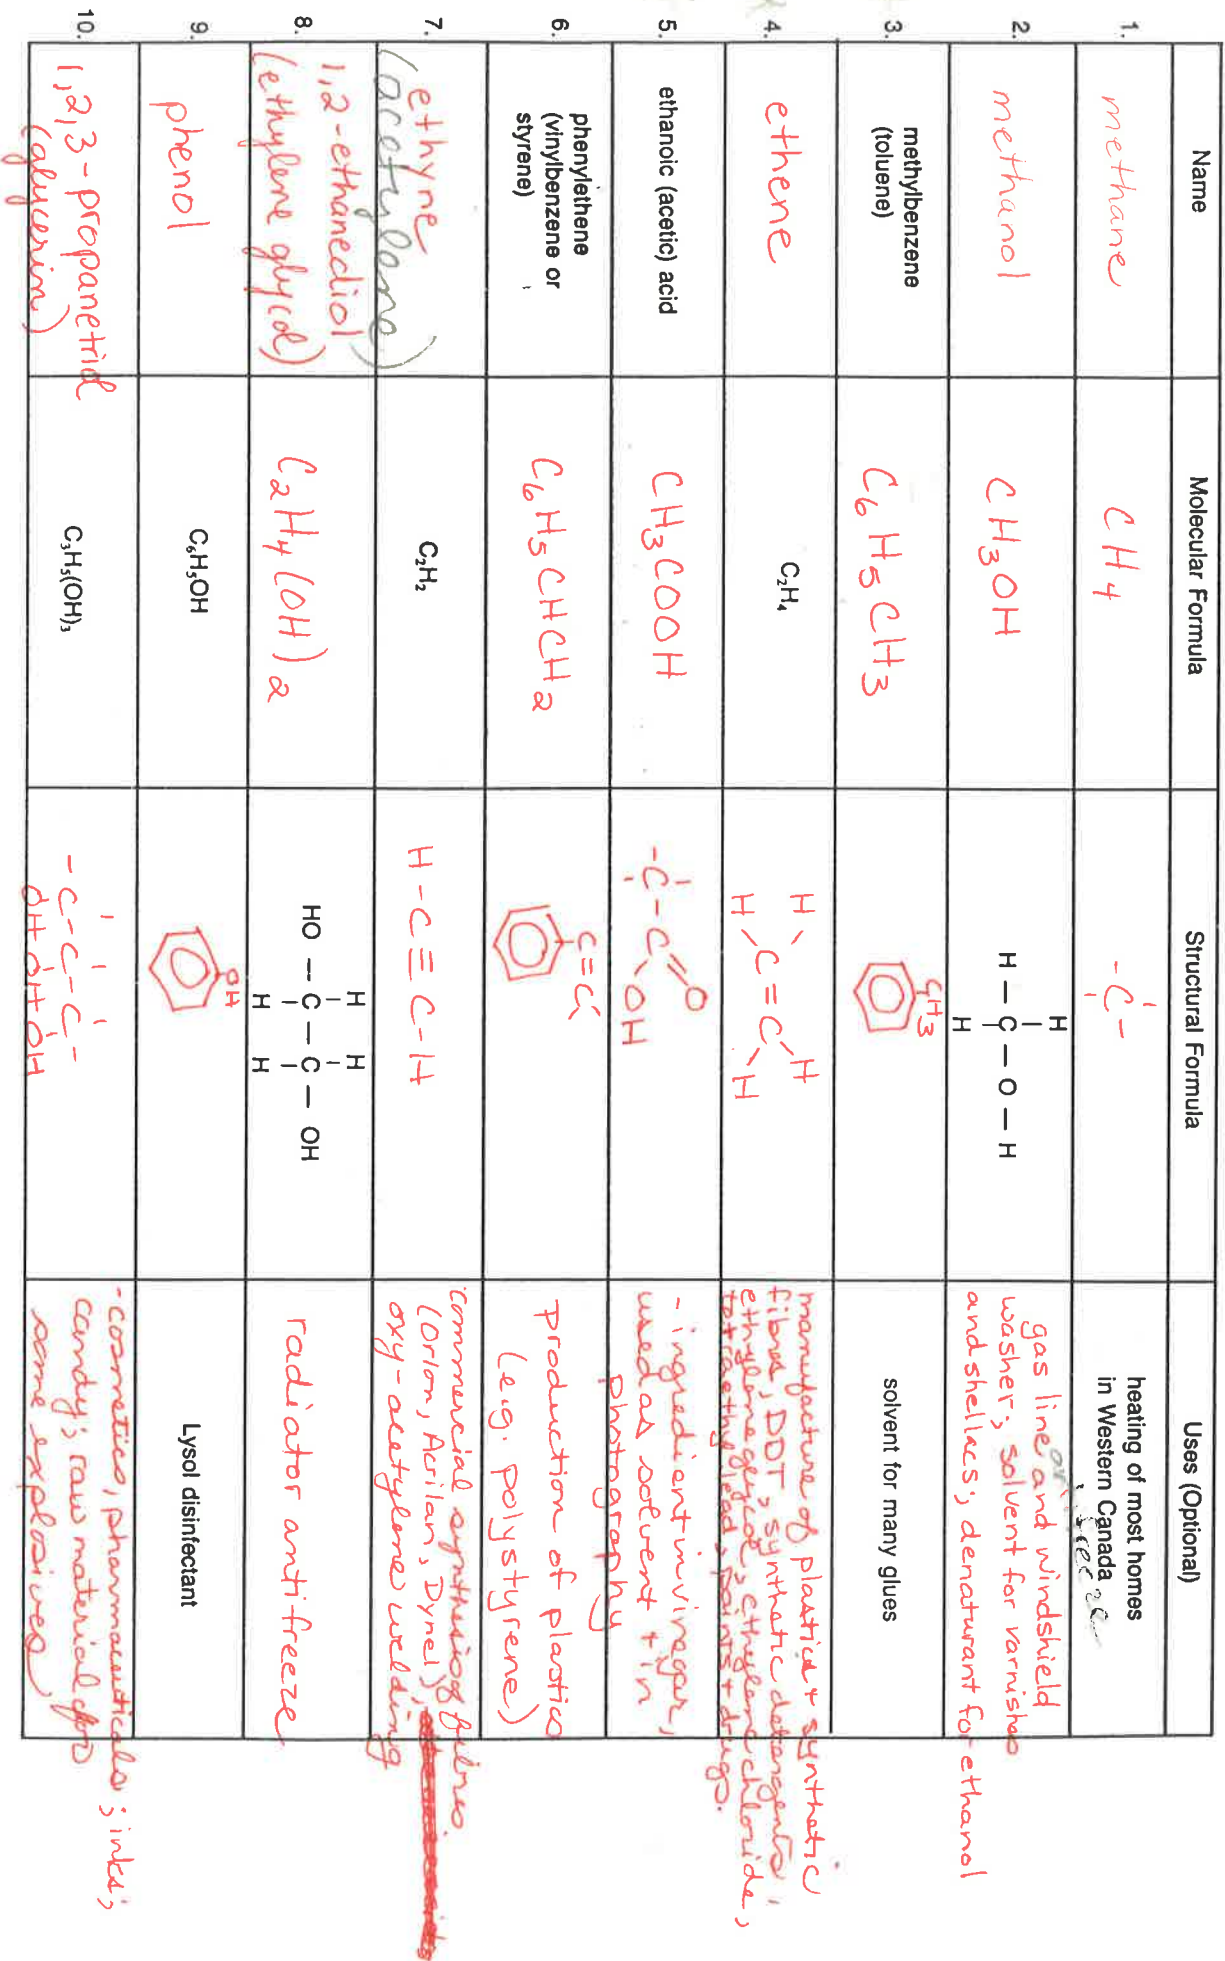 Name Molecular Formula Structural Formula Uses (Optional)
1. methane CH4 -C- heating of most homes
in Western Canada
2. methanol CH3OH H
H — C — O — H
H
gas line and windshield
washer; solvent for varnishes
and shellacs; denaturant for ethanol
3. methylbenzene
(toluene)
C6H5CH3 CH3 solvent for many glues
4. ethene C₂H₄ H H
C=C
H H
manufacture of plastics + synthetic
fibres, DDT, synthetic detergents,
ethylene glycol, ethylene chloride,
tetraethyl lead, paints + drugs.
5. ethanoic (acetic) acid CH3COOH -C-C=O
OH
- ingredient in vinegar,
used as solvent + in
photography
6. phenylethene
(vinylbenzene or
styrene)
C6H5CHCH2 C=C
production of plastics
(e.g. polystyrene)
7. ethyne
(acetylene)
C₂H₂ H-C≡C-H
commercial synthesis of fibres
(Orlon, Acrilan, Dynel)
oxy-acetylene welding
8. 1,2-ethanediol
(ethylene glycol)
C2H4(OH)2 H H
HO — C — C — OH
H H
radiator antifreeze
9. phenol C₆H₅OH OH Lysol disinfectant
10. 1,2,3-propanetriol
(glycerin)
C₃H₅(OH)₃ -C-C-C-
OH OH OH
- cosmetics, pharmaceuticals; inks;
candy; raw material for
some explosives